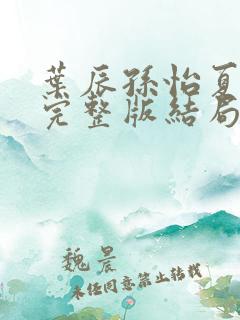 葉辰孫怡夏
完整版結局
魏晨
未任同意禁止转载